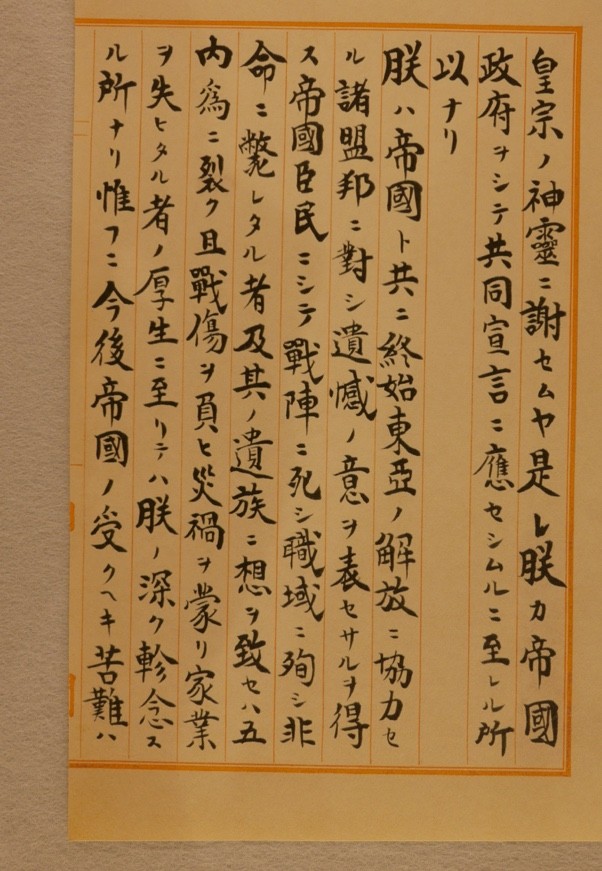 皇宗ノ神靈ニ謝セムヤ是レ朕カ帝國
政府ヲシテ共同宣言ニ應セシムルニ至レル所
以ナリ
朕ハ帝國ト共ニ終始東亞ノ解放ニ協力セ
ル諸盟邦ニ對シ遺憾ノ意ヲ表セサルヲ得
ス帝國臣民ニシテ戰陣ニ死シ職域ニ殉シ非
命ニ斃レタル者及其ノ遺族ニ想ヲ致セハ五
内爲ニ裂ク且戰傷ヲ負ヒ災禍ヲ蒙リ家業
ヲ失ヒタル者ノ厚生ニ至リテハ朕ノ深ク軫念ス
ル所ナリ惟フニ今後帝國ノ受クヘキ苦難ハ